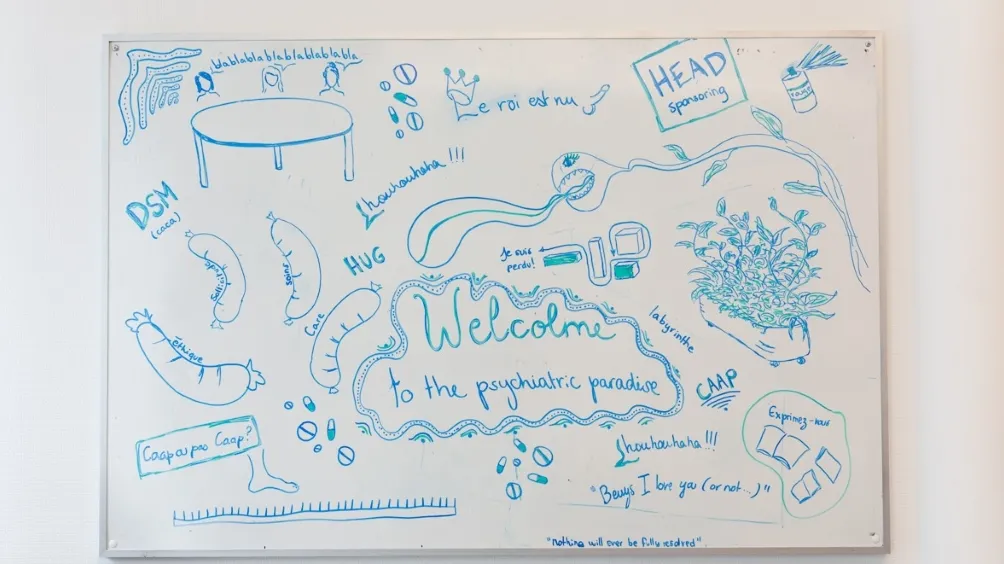 blablablablablablablabla
Le roi est nu
HEAD
sponsoring
houhouhaha !!!
DSM
(caca)
soins
HUG
Je suis
perdu!
Care
éthique
Welcolme
to the psychiatric paradise
labyrinthe
CAAP
Exprimez-vous
Caap ou pas Caap?
houhouhaha!!!
"Beuys I love you (or not...)"
"nothing will ever be fully resolved".